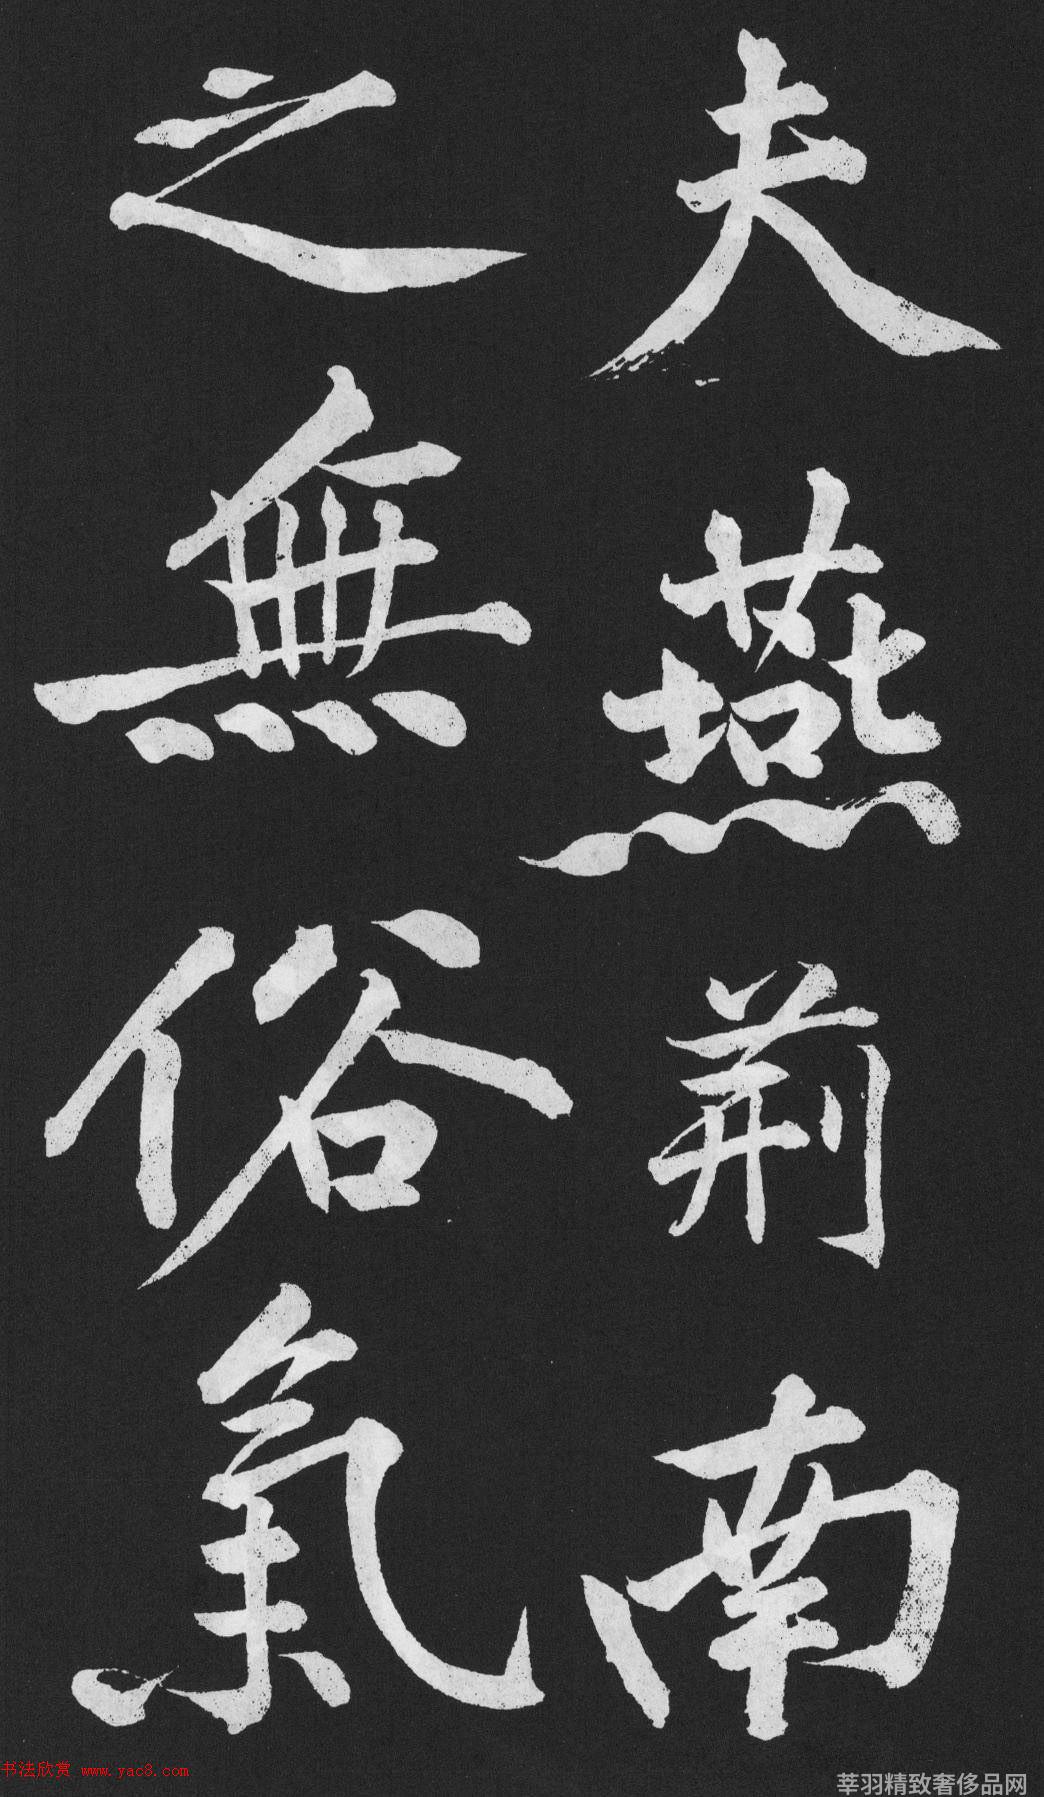 夫燕荊南
之無俗氣
书法欣赏 www.yac8.com
莘羽精致奢侈品网